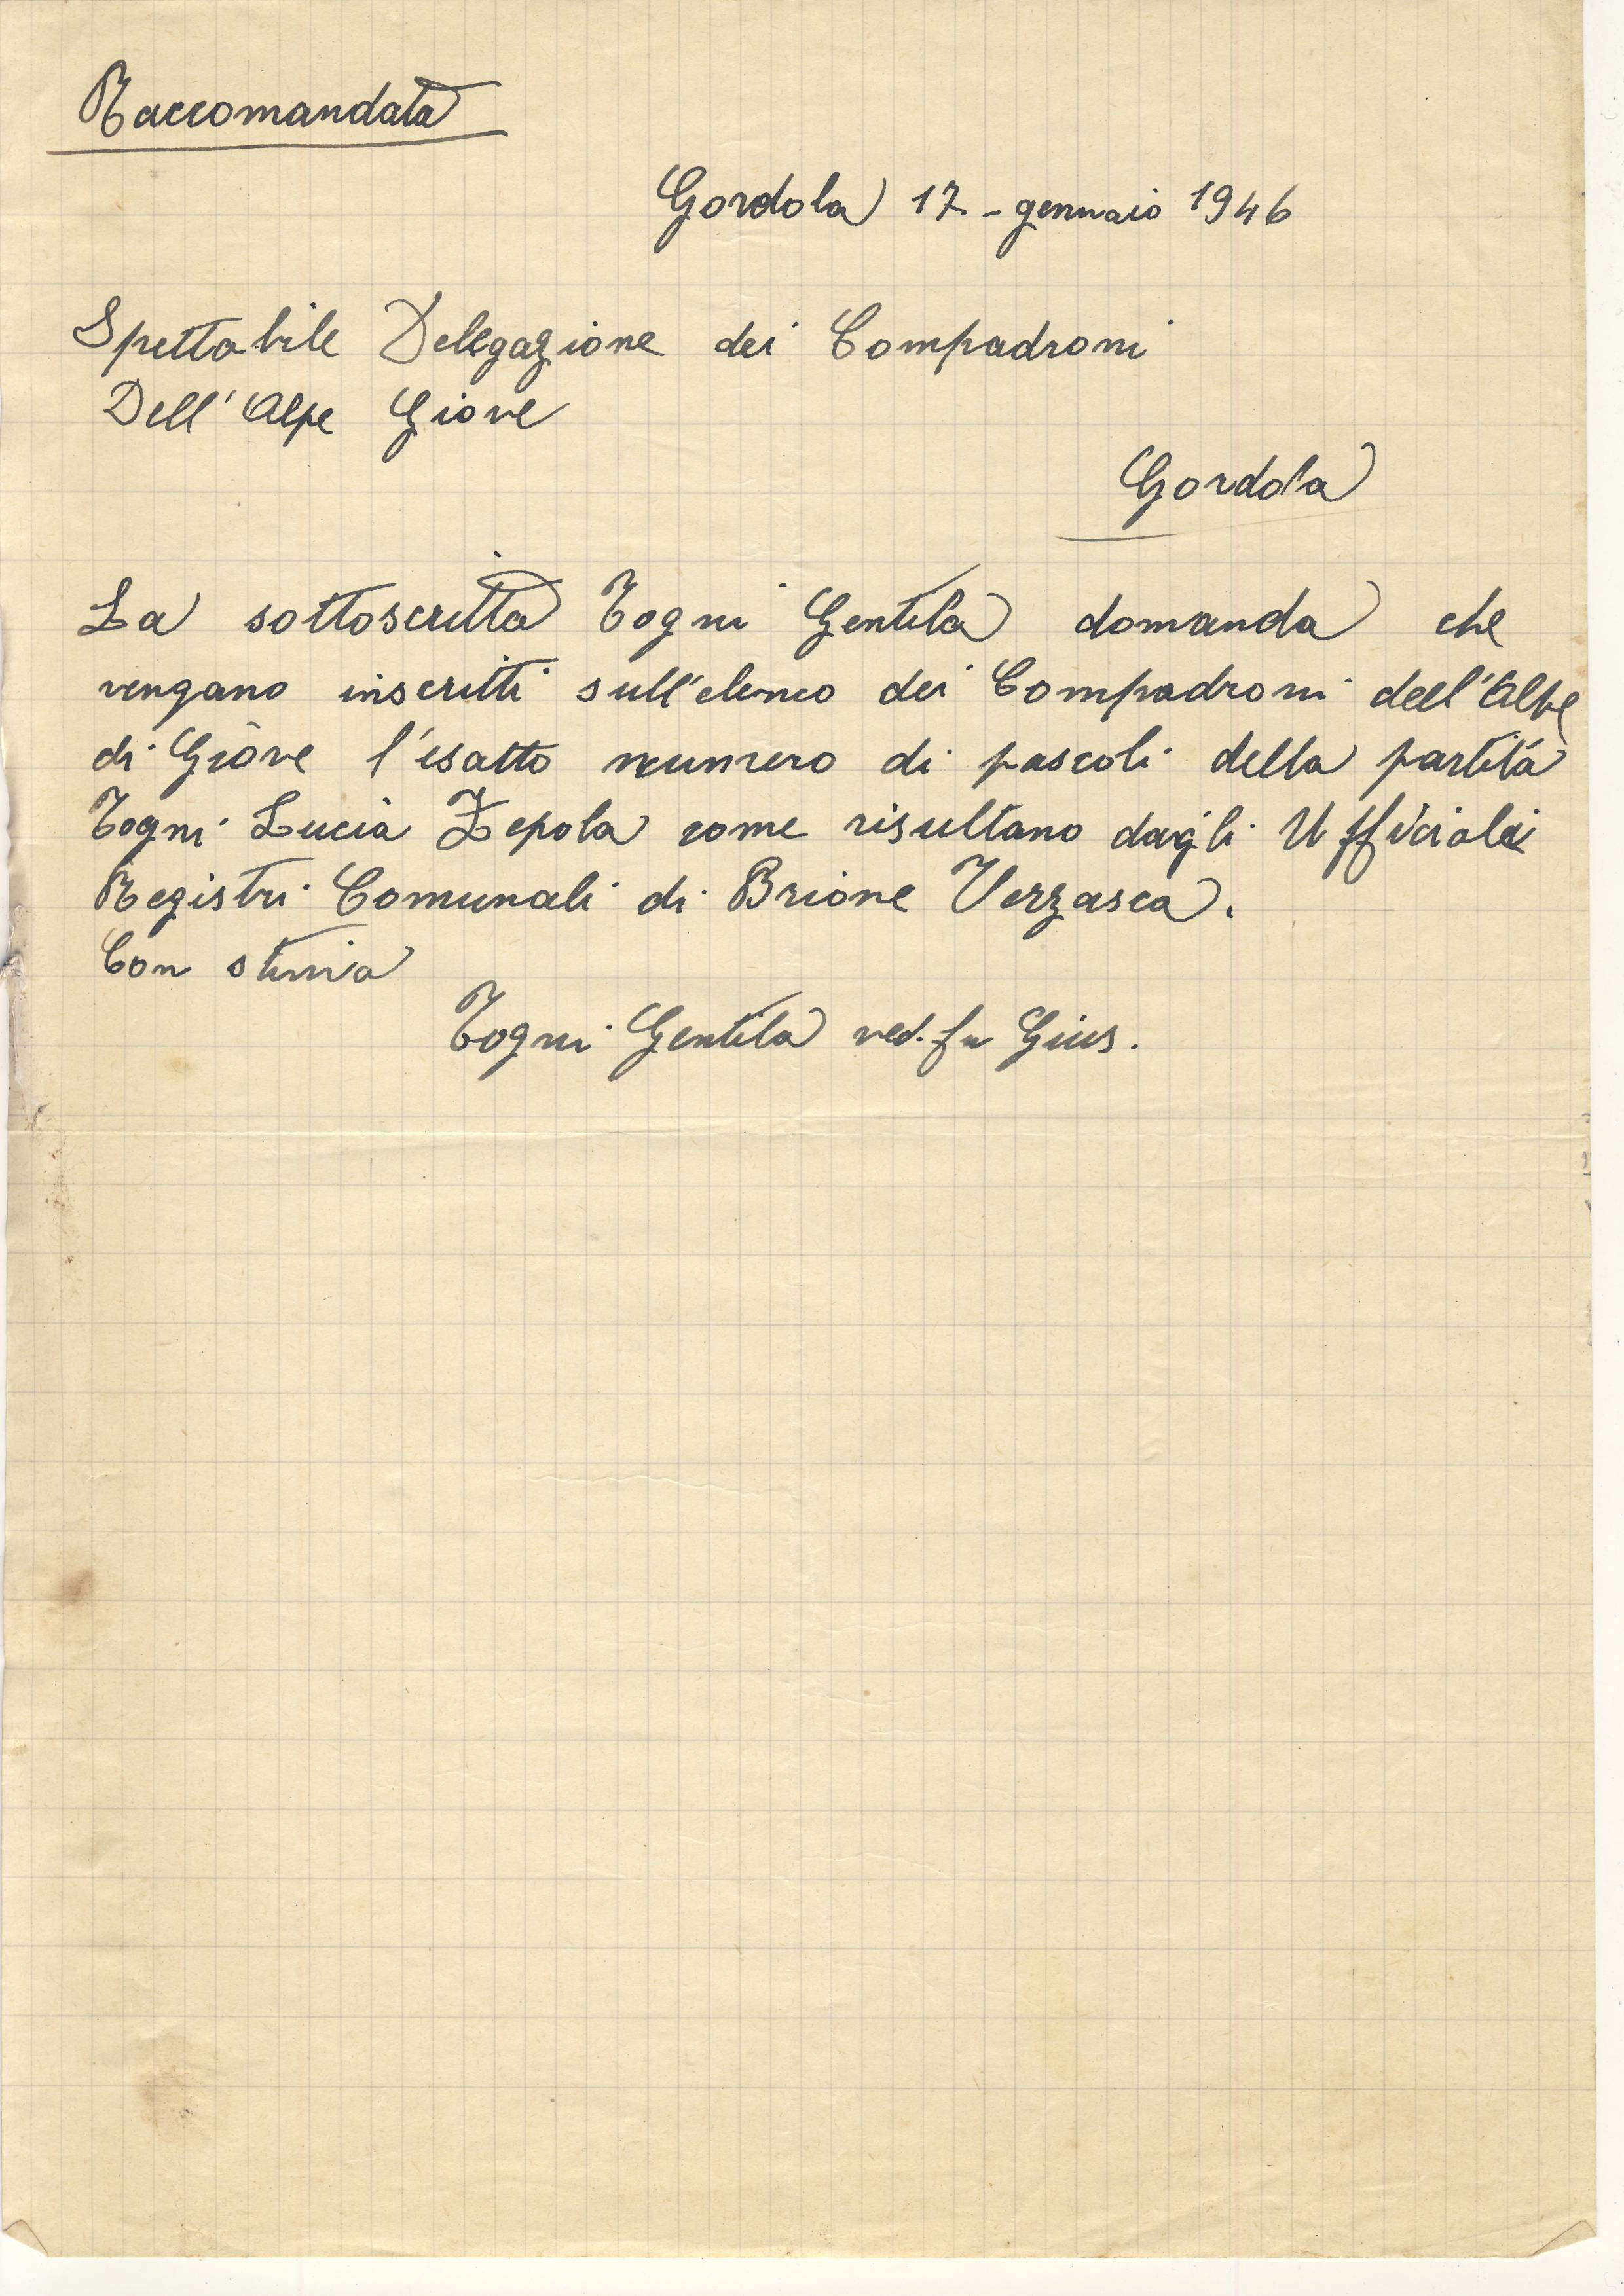 Raccomandata
Gordola 17 - gennaio 1946
Spettabile Delegazione dei Compadroni
Dell' Alpe Giove
Gordola
La sottoscritta Togni Gentila domanda che
vengano inscritti sull'elenco dei Compadroni dell'Alpe
di Giove l'esatto numero di pascoli della partita
Togni Lucia Zepola come risultano dagli Ufficiali
Registri Comunali di Brione Verzasca.
Con stima
Togni Gentila ved. fu Gius.